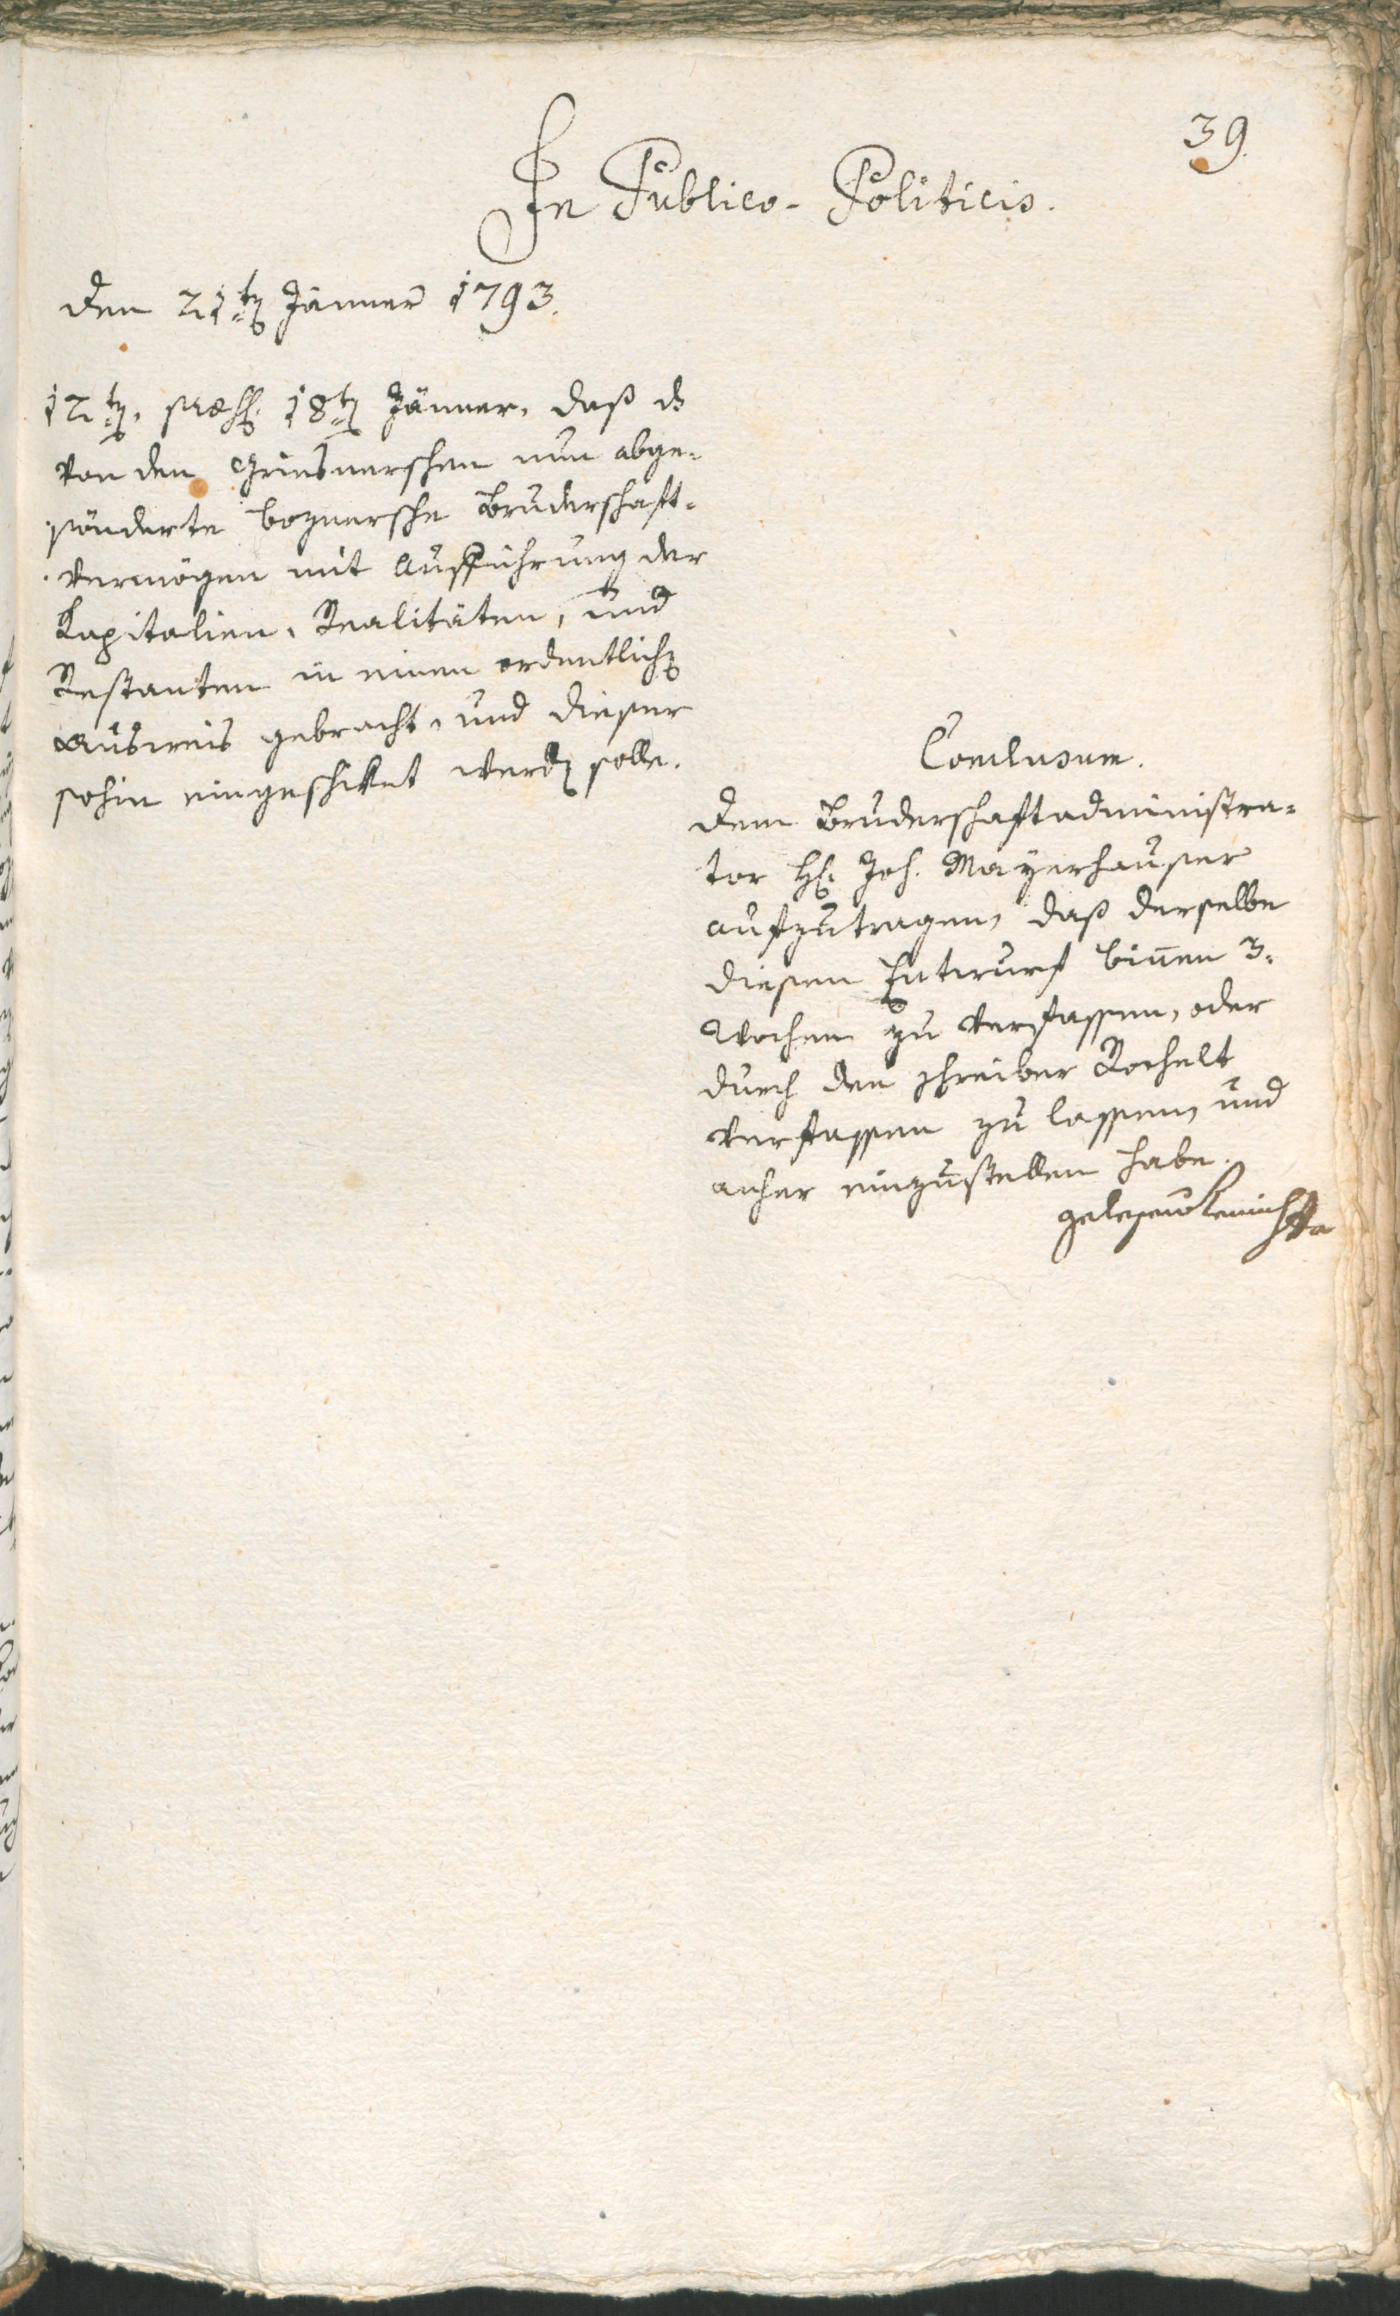 39.
In Publico-Politicis.
Den 21ten Jänner 1793.
12ten, præs. 18ten Jänner, daß ds
von den Griesnerschen nun abge-
sönderte boznersche Bruderschaft-
vermögen mit Ausführung der
Kapitalien, Realitäten, und
Restanten in einen ordentlichen
Ausweis gebracht, und dieser
sohin eingeschiket werden solle.
Conclusum.
Dem Bruderschaftadministra-
tor H. Joh. Mayrhauser
aufzutragen, daß derselbe
diesen Entwurf binnen 3.
Wochen zu verfassen, oder
durch den Schreiber Rochelt
verfassen zu lassen, und
anher einzustellen habe.
gelesen